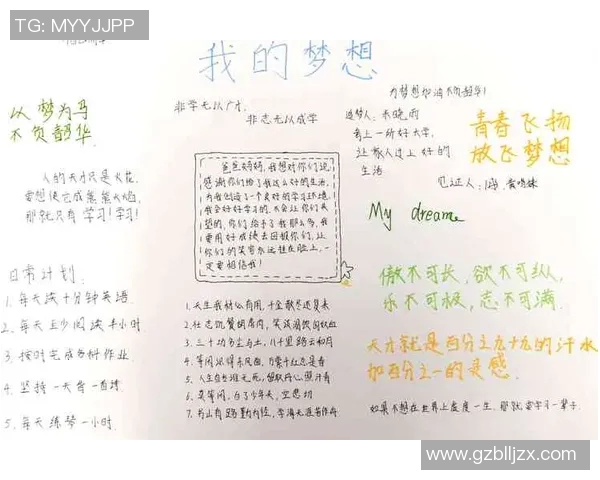 TG: MYYJJPP
我的梦想
以梦为马
不负韶华
非学无以广才,
非志无以成学
为梦想加油不负韶华!
追梦人:
考上一所好大学,
让家人过上好的
生活
见证人:
青春飞扬
放飞梦想
人的天才只是火花,
要想使它成熊熊火焰,
那就只有学习!学习!
爸爸妈妈,我想对你们说,
感谢你们给了我这么好的生活,
为我创造了一个良好的学习环境,
我会好好学习的,不会让你们失
望的,你们给予了我那么多,我
要用好成绩去回报你们,让
你们的笑容永远挂在脸上,一
定要相信我!
My dream
日常计划
1、每天读十分钟英语.
2、每天至少阅读半小时
3、按时完成各科作业
4、坚持一天背一首诗
5、每天练琴一小时.
1、天生我材必有用,千金散尽还复来
2、壮志饥餐胡虏肉,笑谈渴饮匈奴血
3、三十功名尘与土,八千里路云和月
4、等闲识得东风面,万紫千红总是春
5、人生自古谁无死,留取丹心照汗青
6、莫等闲,白了少年头,空悲切
7、书山有路勤为径,学海无涯苦作舟
傲不可长,欲不可纵,
乐不可极,志不可满.
天才就是百分之九十九的汗水
加百分之一的灵感.
如果不想在世界上虚度一生,那就要学习一辈子.
www.gzblljzx.com